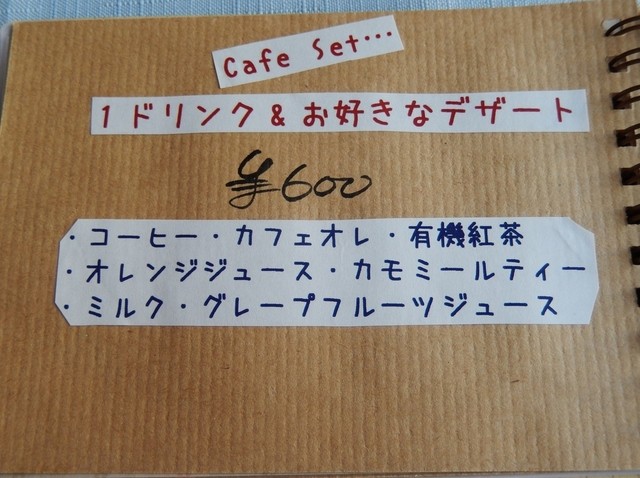 Cafe Set…
1ドリンク&お好きなデザート
¥600
・コーヒー・カフェオレ・有機紅茶
・オレンジジュース・カモミールティー
・ミルク・グレープフルーツジュース